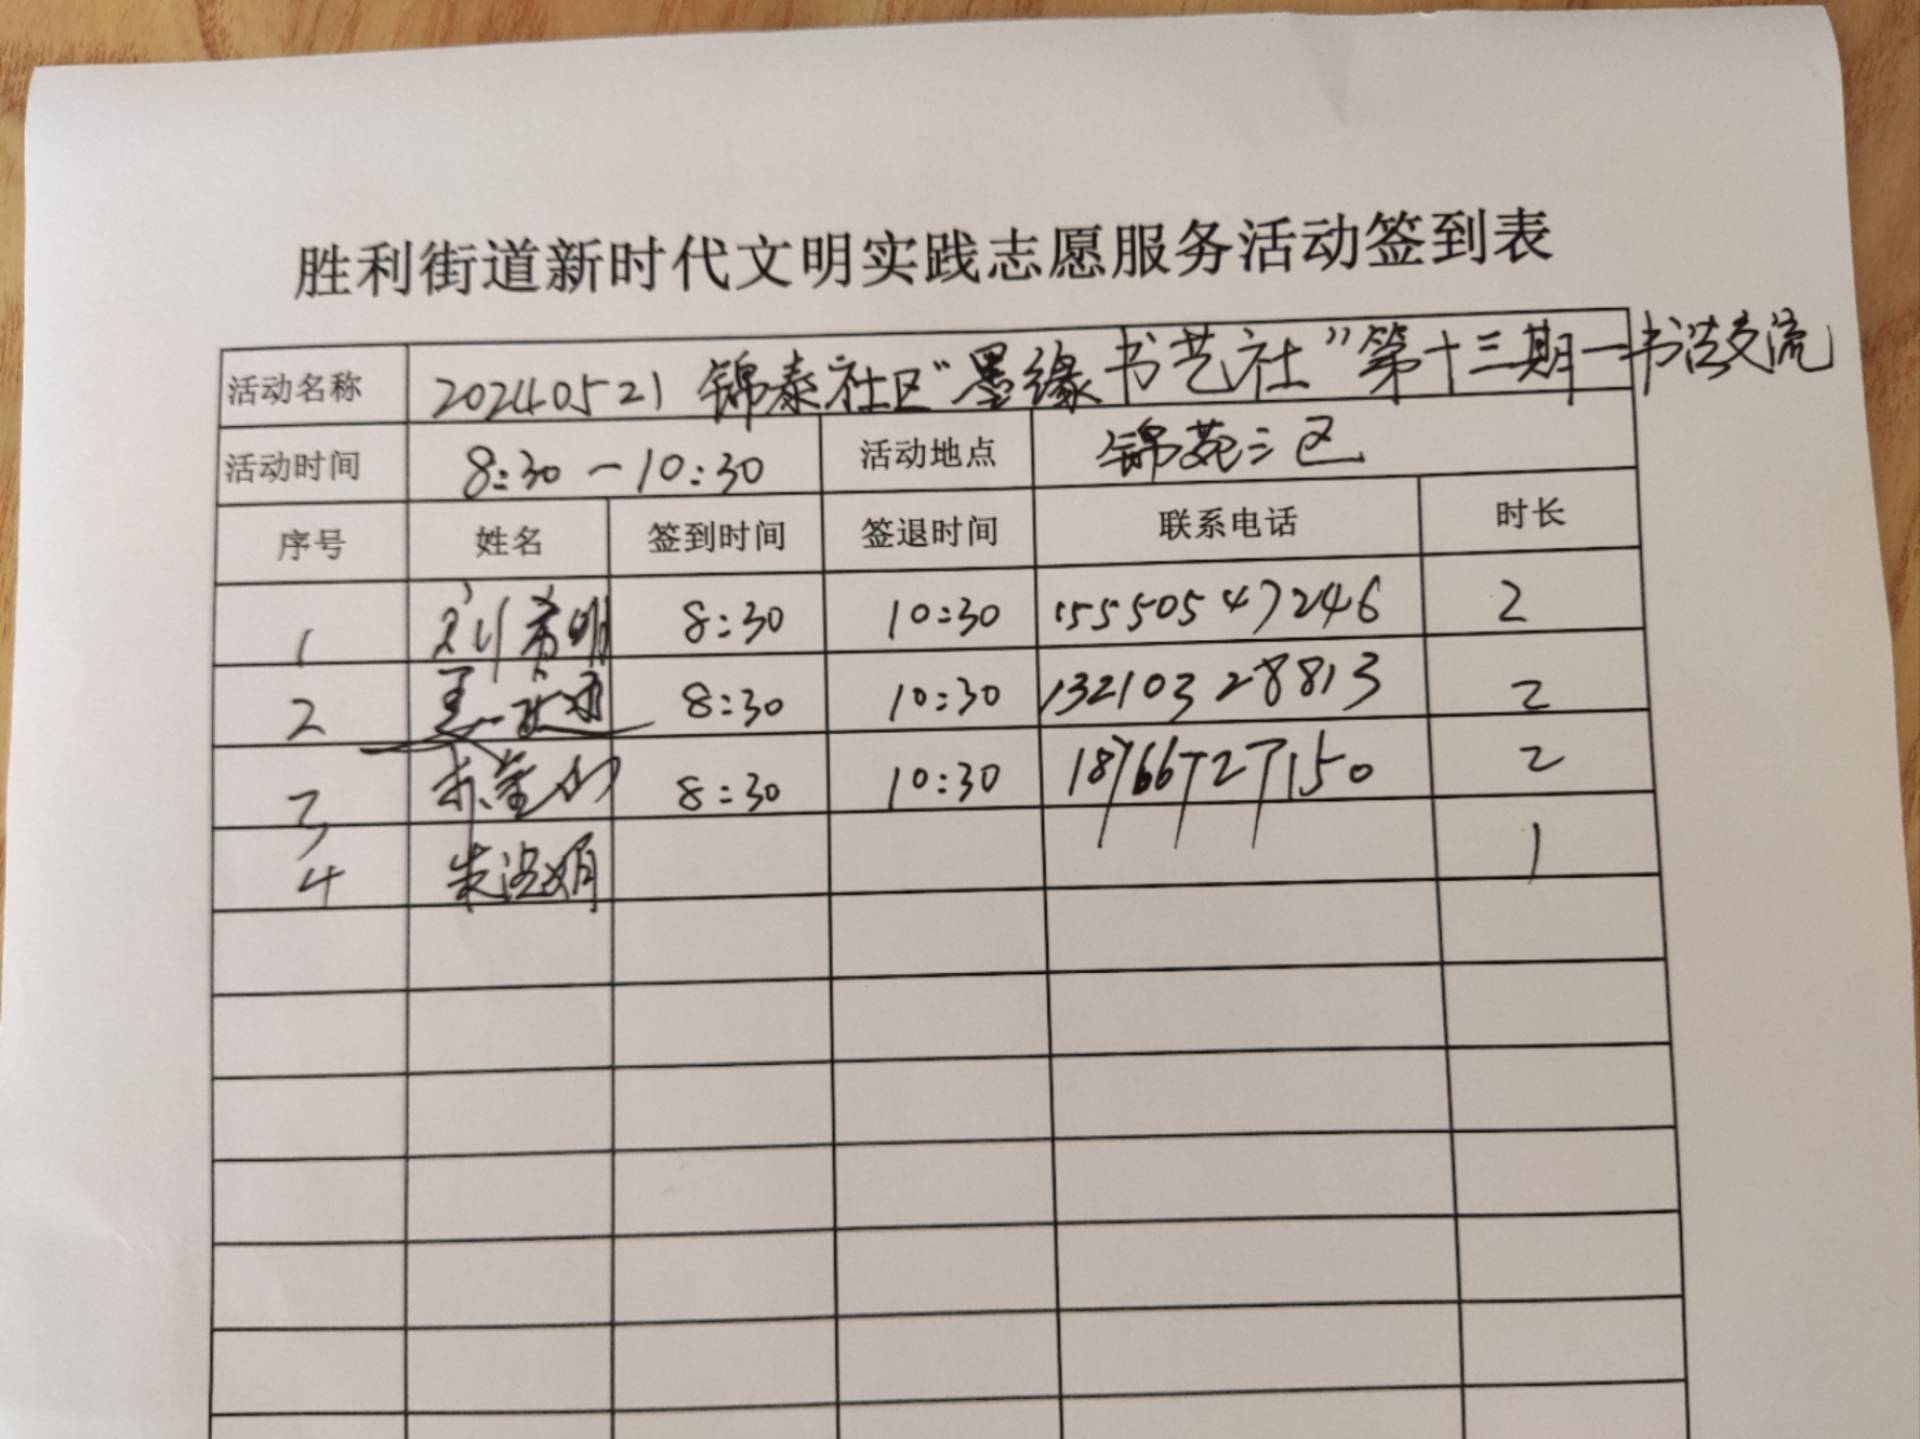 胜利街道新时代文明实践志愿服务活动签到表
活动名称 20240521 锦泰社区“墨缘书艺社”第十三期一书法交流
活动时间 8:30一10:30 活动地点 锦苑三区
序号 姓名 签到时间 签退时间 联系电话 时长
1 刘希明 8:30 10:30 15550547246 2
2 8:30 10:30 13210328813 2
3 8:30 10:30 18766727150 2
4 朱洺娟 1